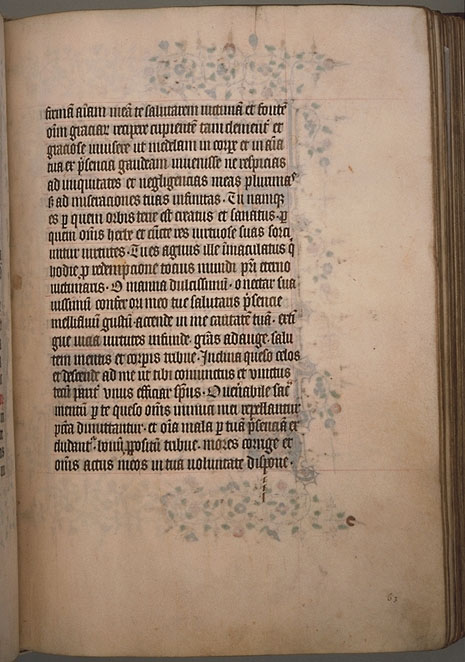 firmā aīam meā te salutarem victimā et fontē
oīm graciar̄ recipere cupientē tam clement̄ et
graciose inuisere ut medelam in corpe et in aīa
tua ex p̄sencia gaudeam inuenisse ne respicias
ad iniquitates et negligencias meas plurimas
s̄ ad miseraciones tuas infinitas. Tu namq̄
es p quem orbis terre est creatus et sanatus. p
quem oīns herbe et cūcte res virtuose suas sorci
untur virtutes. Tu es agnus ille īmaculatus q̄
hodie p redempcione tocius mundi pr̄i eterno
victimaris. O manna dulcissimū. o nectar sua
uissimū confer ori meo tue salutaris p̄sencie
mellifluū gustū. accende in me caritatē tuā. extī
gue vicia virtutes infunde. grās adauge. salu
tem mentis et corpis tribue. Inclina queso celos
et descende ad me ut tibi coniunctus et vnictus
tecū vnus efficiar sp̄us. O uen̄abile sac̄
mentū p te queso oīns inimici mei repellantur
p̄cc̄a dimittantur. et oīa mala p tuā p̄senciā ex
cludant̄. bonū p̄positū tribue. mores corrige et
oīns actus meos in tua voluntate dispone.
63